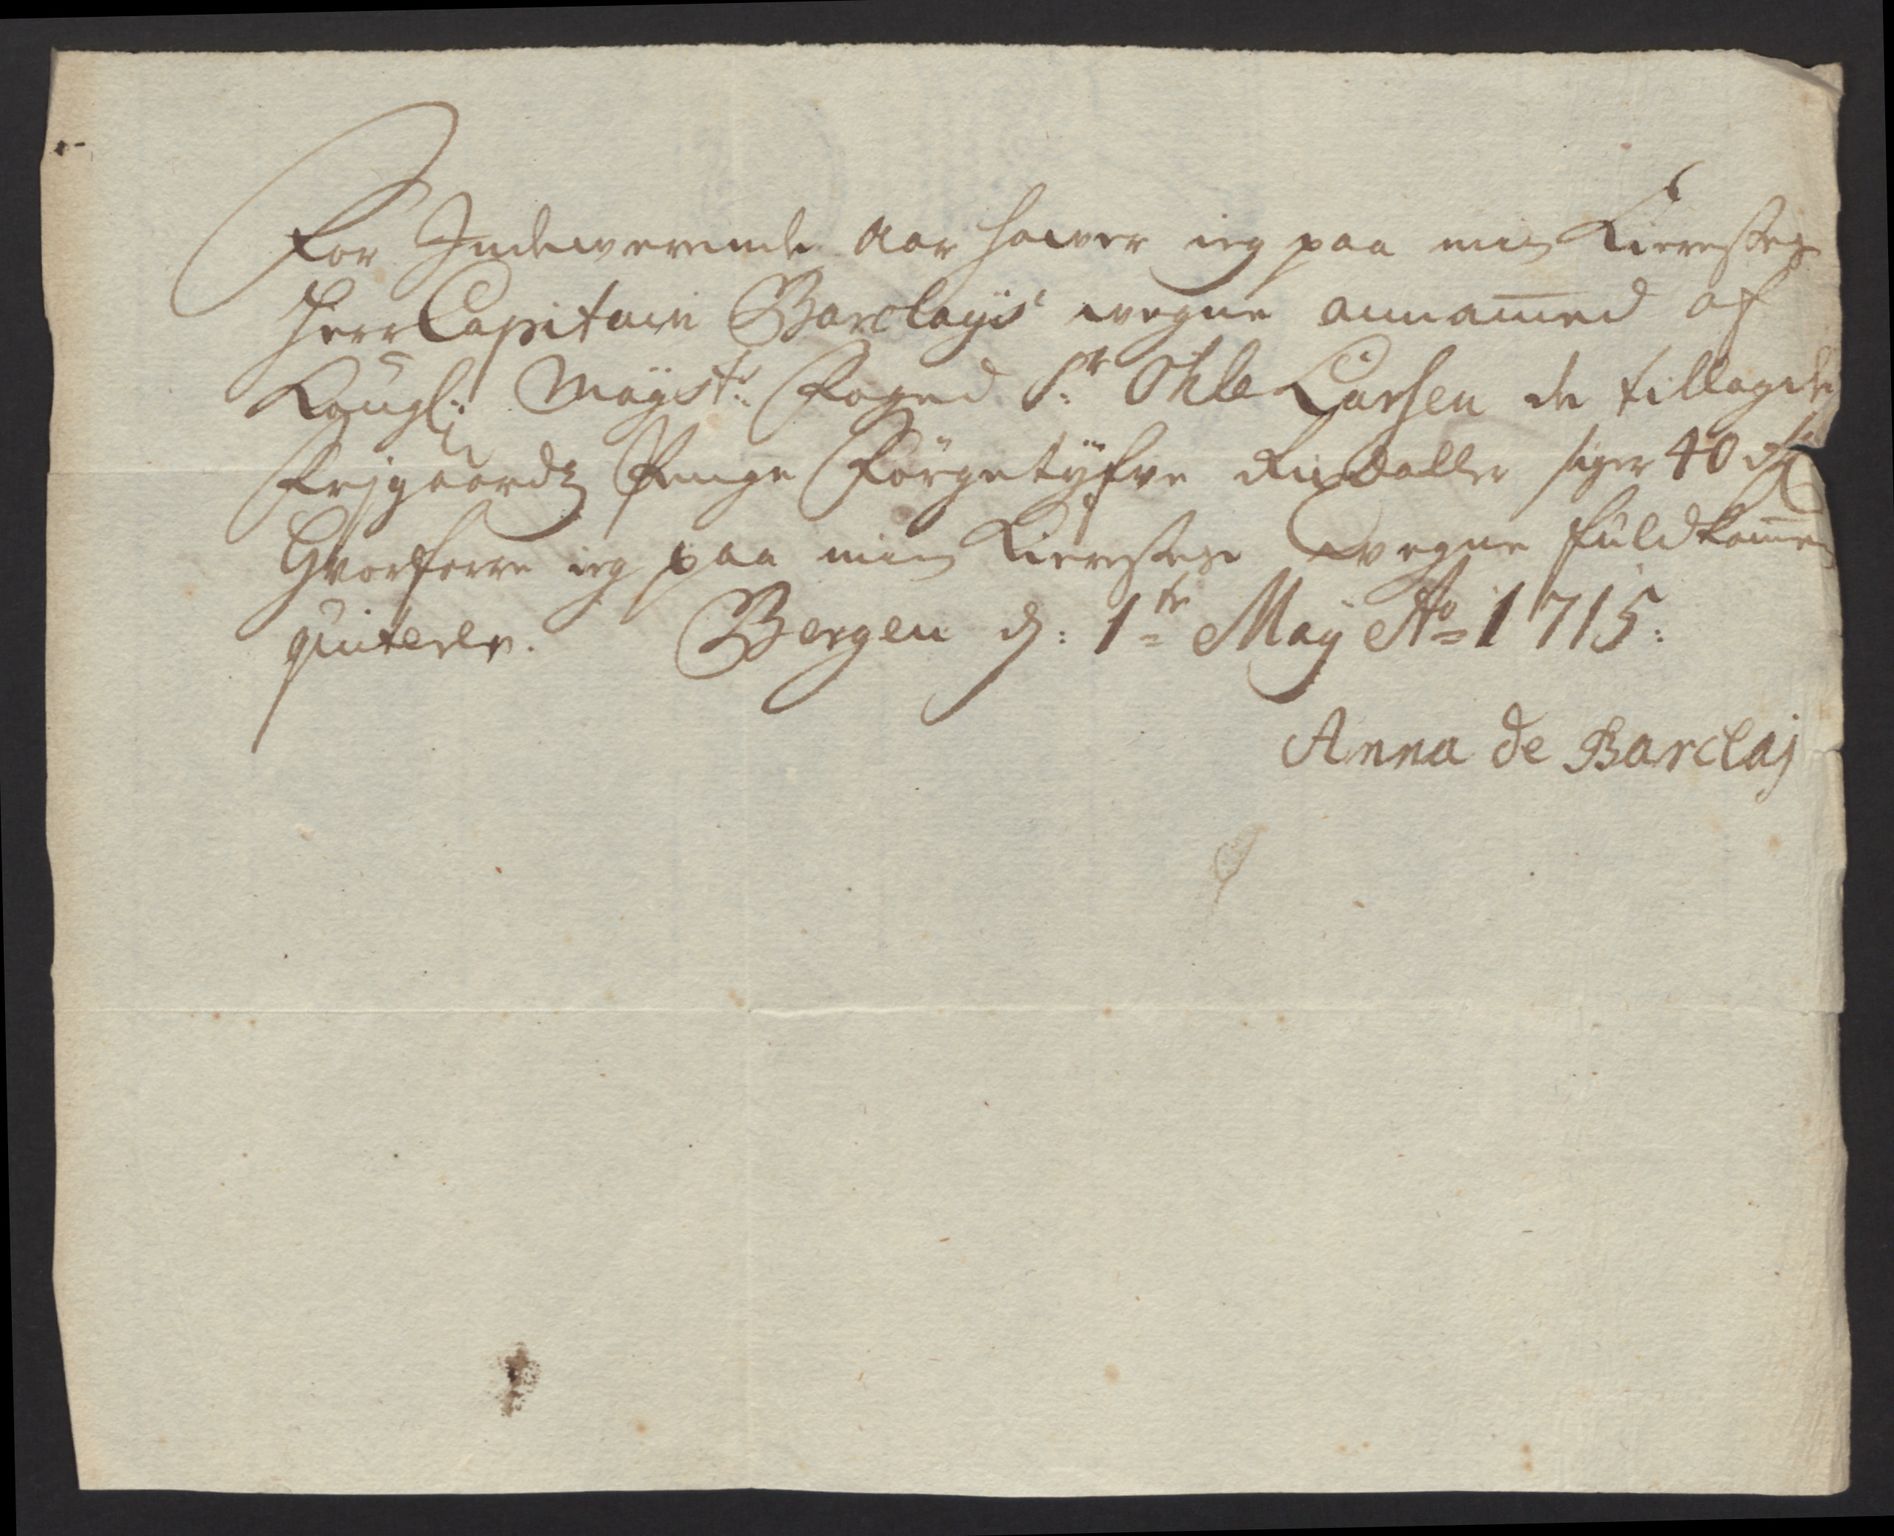 For Indewerende Aar hawer ieg paa min Kierestes
Herr Capitain Barclayis wegne annammed af
Kongl: Mayst: Foged Sr: Ohle Larsen de tillagde
Frjgaardz Penge Förgetÿfve Rixdaller siger 40 Rd
Hvorforre ieg paa min Kierestes wegne fuldkommen
quiterer. Bergen d: 1te May Ao 1715:
Anna de Barclaj